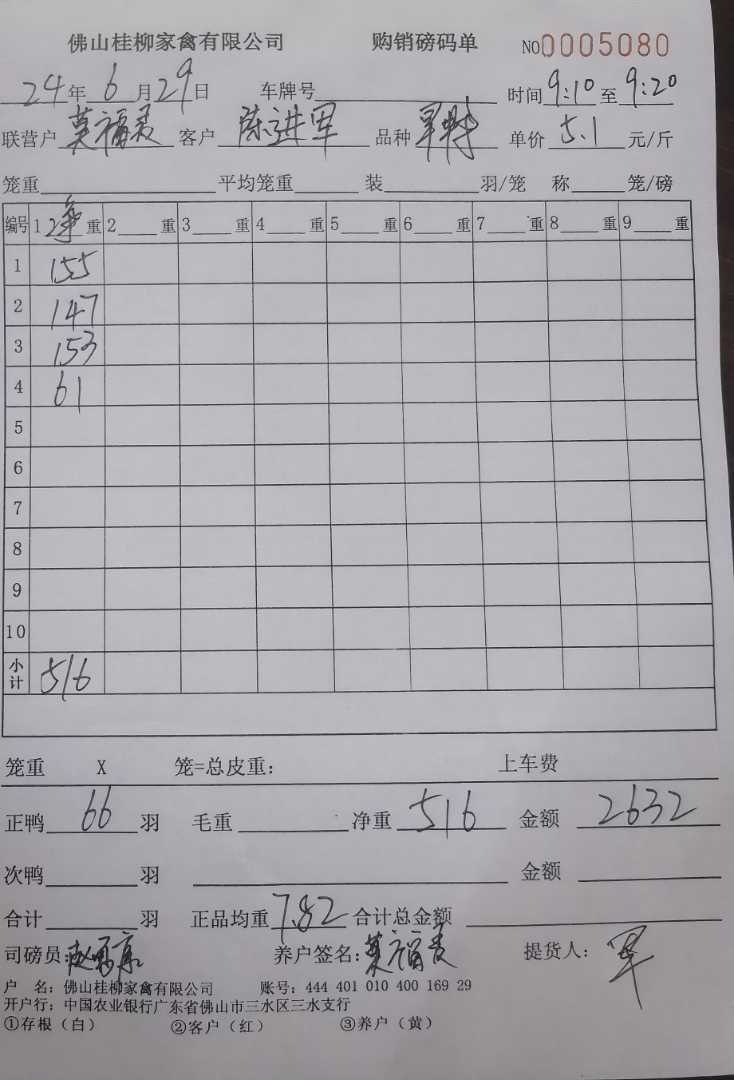 佛山桂柳家禽有限公司 购销磅码单 NO0005080
24年 6月29日 车牌号 时间 9:10 至 9:20
联营户 莫福麦 客户 陈进军 品种 单价 5.1 元/斤
笼重 平均笼重 装 羽/笼 称 笼/磅
编号 1 净 重 2 重 3 重 4 重 5 重 6 重 7 重 8 重 9 重
1 155
2 147
3 153
4 61
5
6
7
8
9
10
小计 516
笼重 X 笼=总皮重: 上车费
正鸭 66 羽 毛重 净重 516 金额 2632
次鸭 羽 金额
合计 羽 正品均重 7.82 合计总金额
司磅员: 养户签名: 莫福麦 提货人: 军
户 名: 佛山桂柳家禽有限公司 账号: 444 401 010 400 169 29
开户行: 中国农业银行广东省佛山市三水区三水支行
①存根(白) ②客户(红) ③养户(黄)